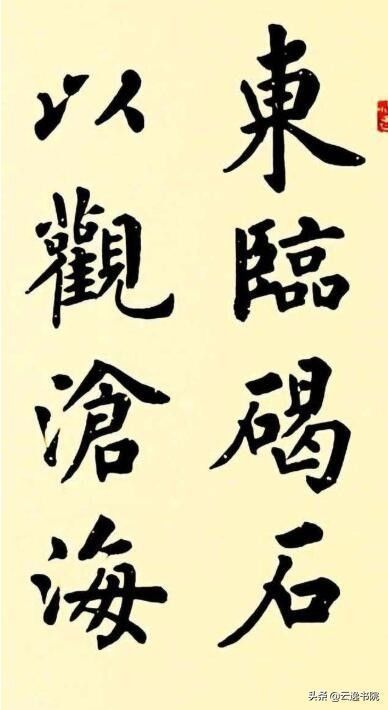 東臨碣石
以觀滄海
头条 @云逸书院